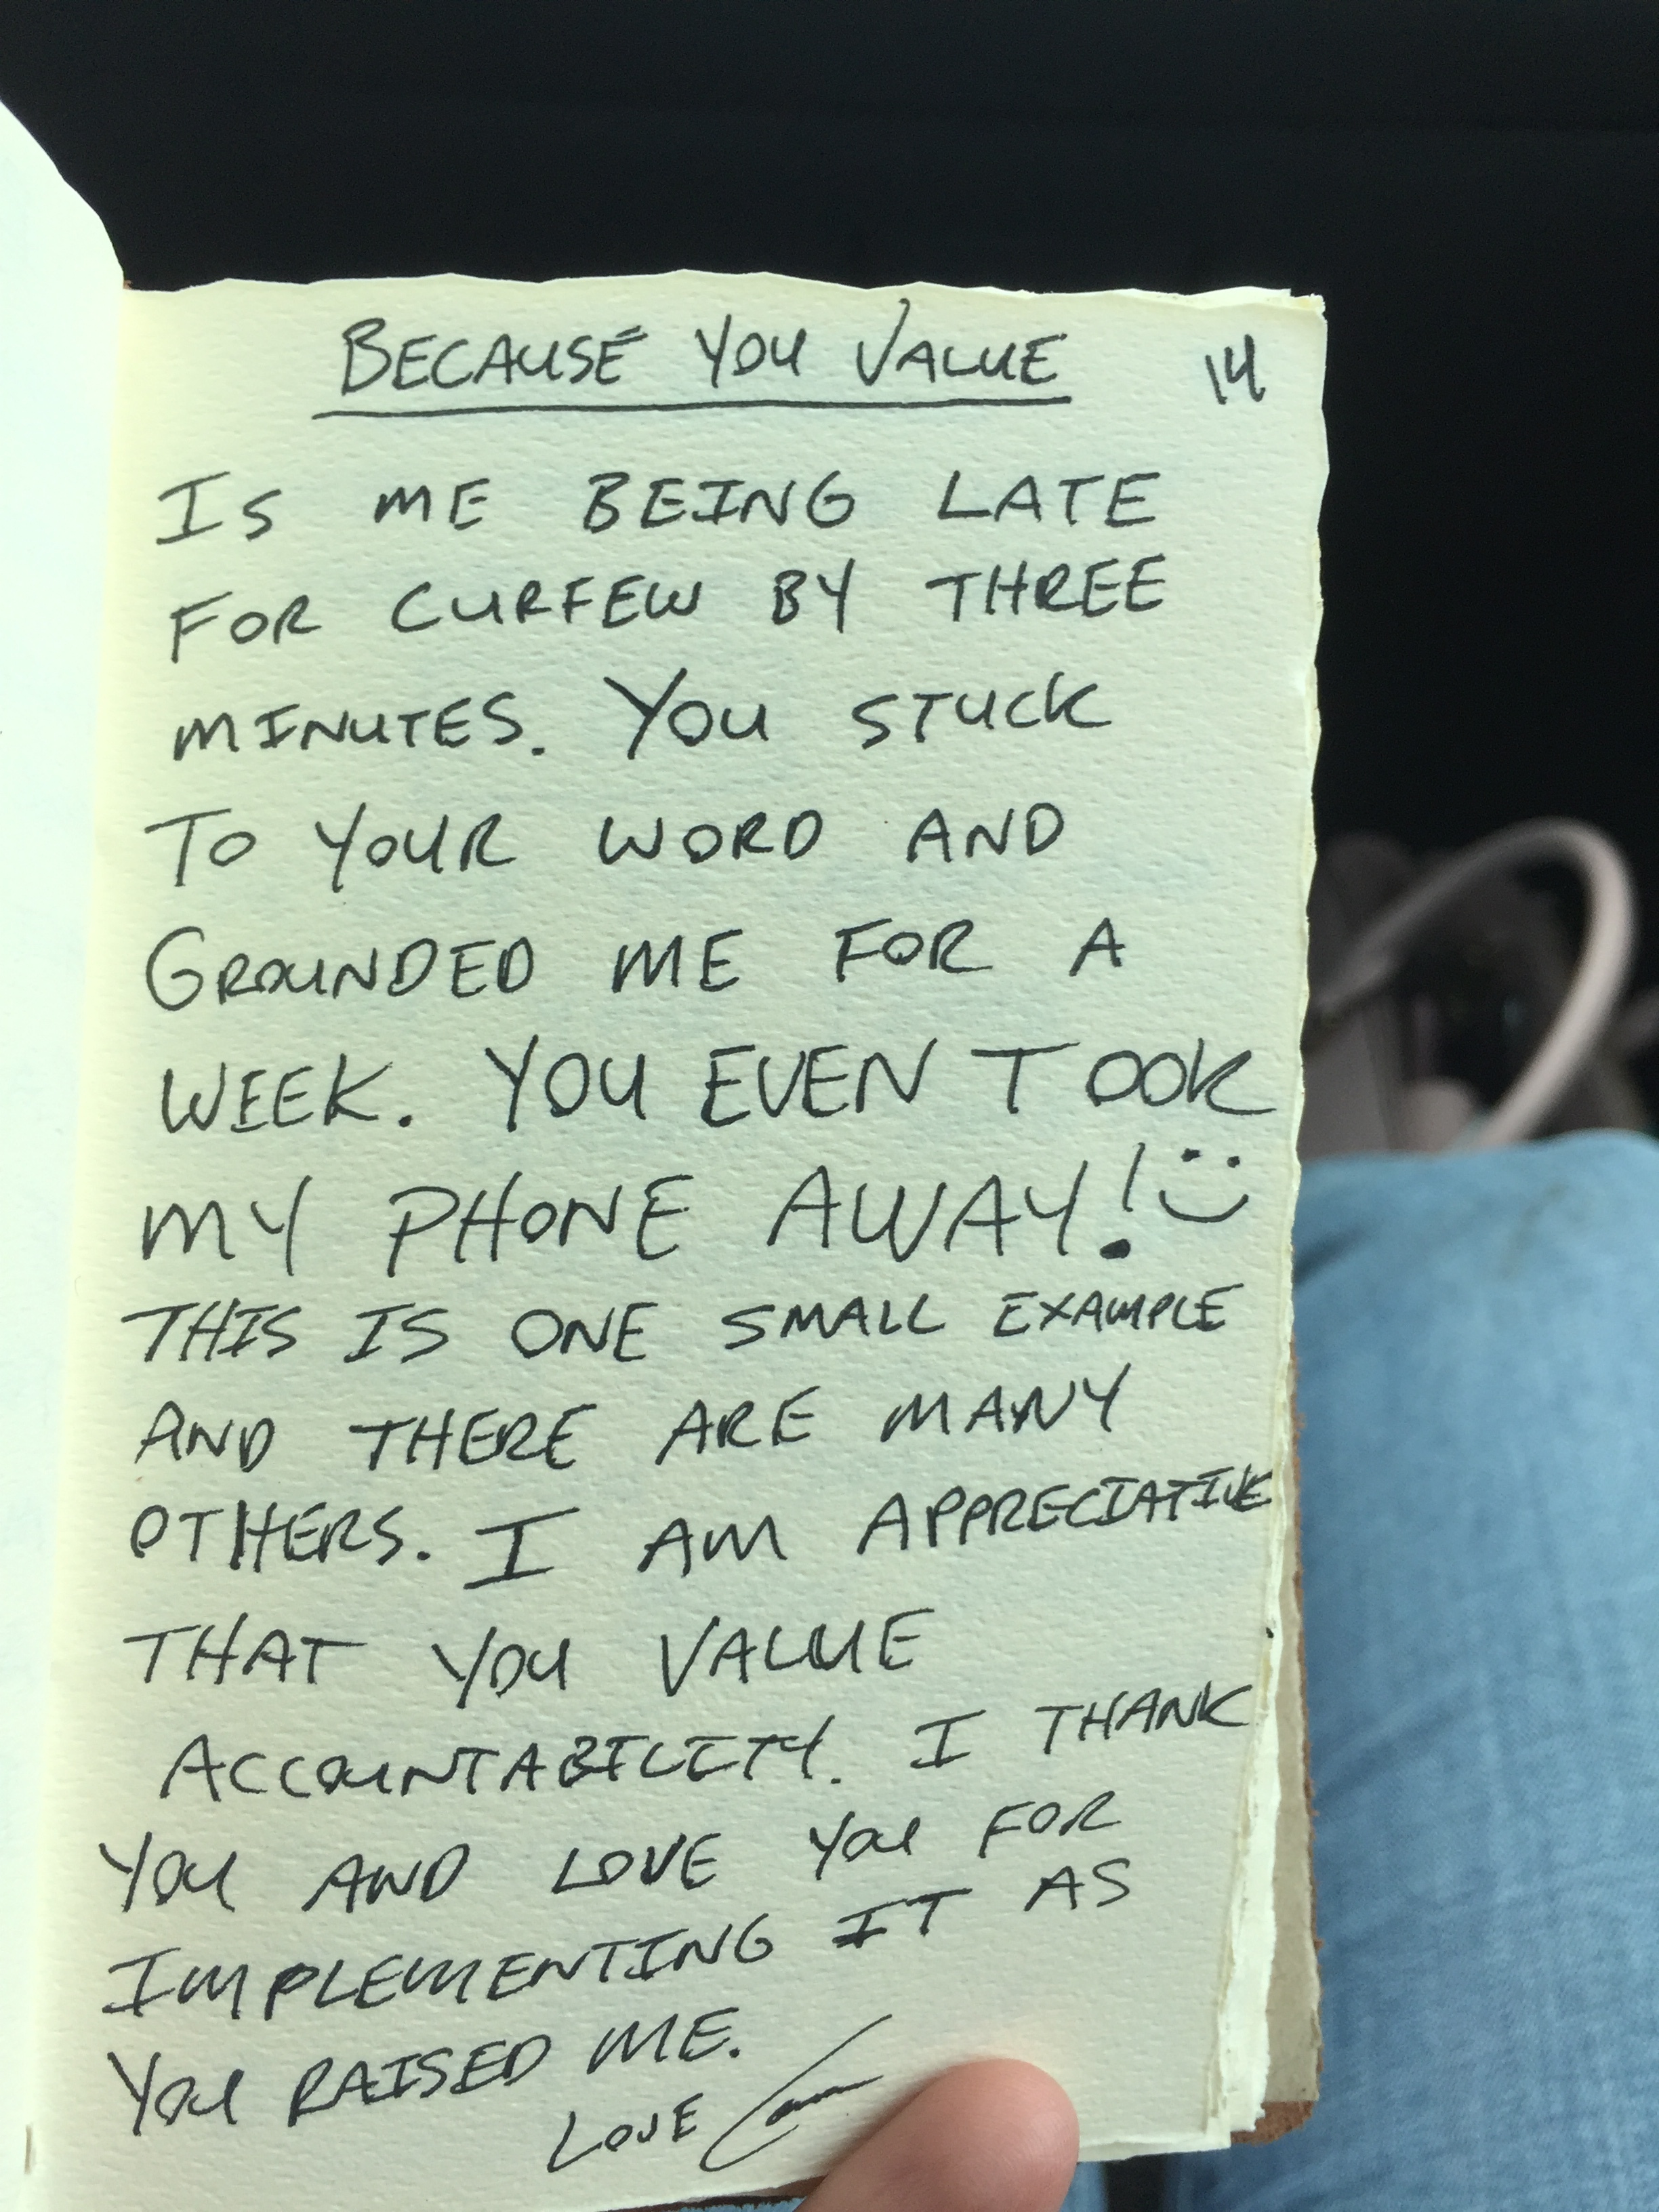 BECAUSE YOU VALUE 14
IS ME BEING LATE
FOR CURFEW BY THREE
MINUTES. YOU STUCK
TO YOUR WORD AND
GROUNDED ME FOR A
WEEK. YOU EVEN TOOK
MY PHONE AWAY! :)
THIS IS ONE SMALL EXAMPLE
AND THERE ARE MANY
OTHERS. I AM APPRECIATIVE
THAT YOU VALUE
ACCOUNTABILITY. I THANK
YOU AND LOVE YOU FOR
IMPLEMENTING IT AS
YOU RAISED ME.
LOVE